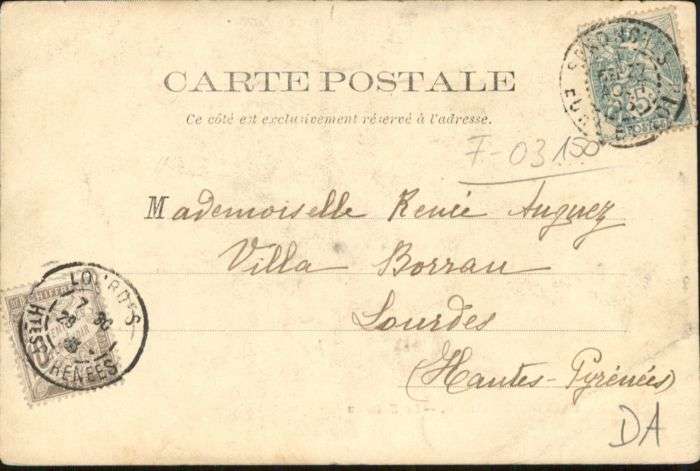 CARTE POSTALE
Ce côté est exclusivement réservé à l'adresse.
F-03150
Mademoiselle Renée Auguez
Villa Borrau
Lourdes
(Hautes-Pyrénées)
LOURDES
7 30
29
HTES PYRENEES
DA